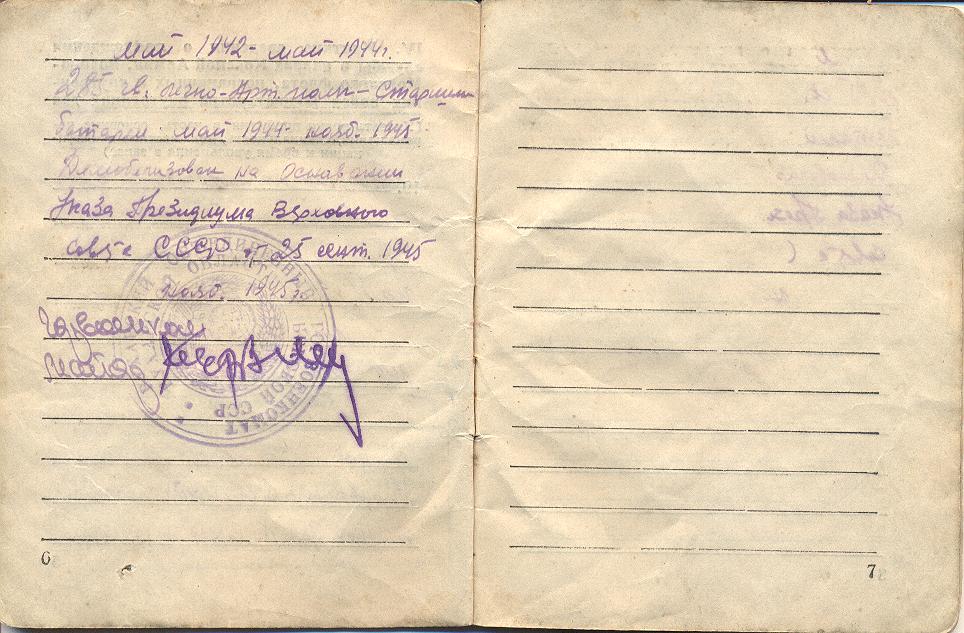 май 1942 - май 1944г.
285 гв. легко-Арт. полк - Старшина
батареи май 1944 - нояб. 1945
Демобилизован на основании
Указа Президиума Верховного
Совета СССР от 25 сент. 1945
нояб. 1945г.
майор
ВОЕНКОМАТ
ССР
6
7